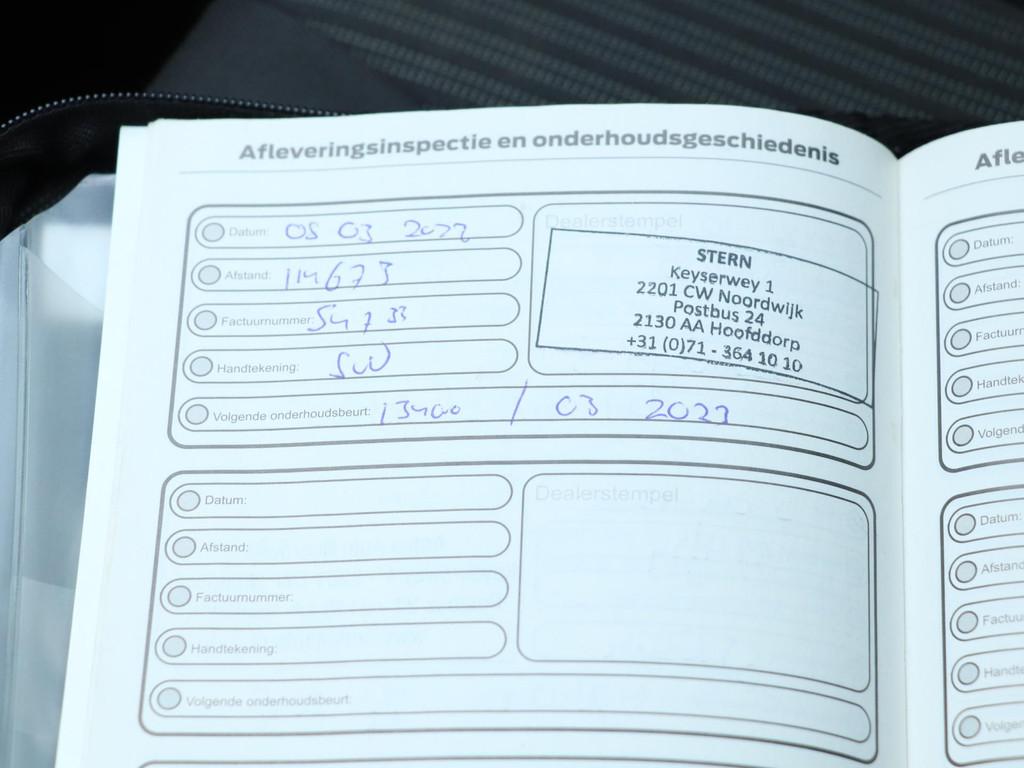 Afleveringsinspectie en onderhoudsgeschiedenis
Datum: 05 03 2022
Afstand: 114673
Factuurnummer: 54733
Handtekening: SW
Volgende onderhoudsbeurt: 13400 / 03 2023
Dealerstempel
STERN
Keyserwey 1
2201 CW Noordwijk
Postbus 24
2130 AA Hoofddorp
+31 (0)71 - 364 10 10
Datum:
Afstand:
Factuurnummer:
Handtekening:
Volgende onderhoudsbeurt:
Dealerstempel
Afle
Datum:
Afstand:
Factuurn
Handtek
Volgend
Datum:
Afstand
Factuu
Handte
Volge